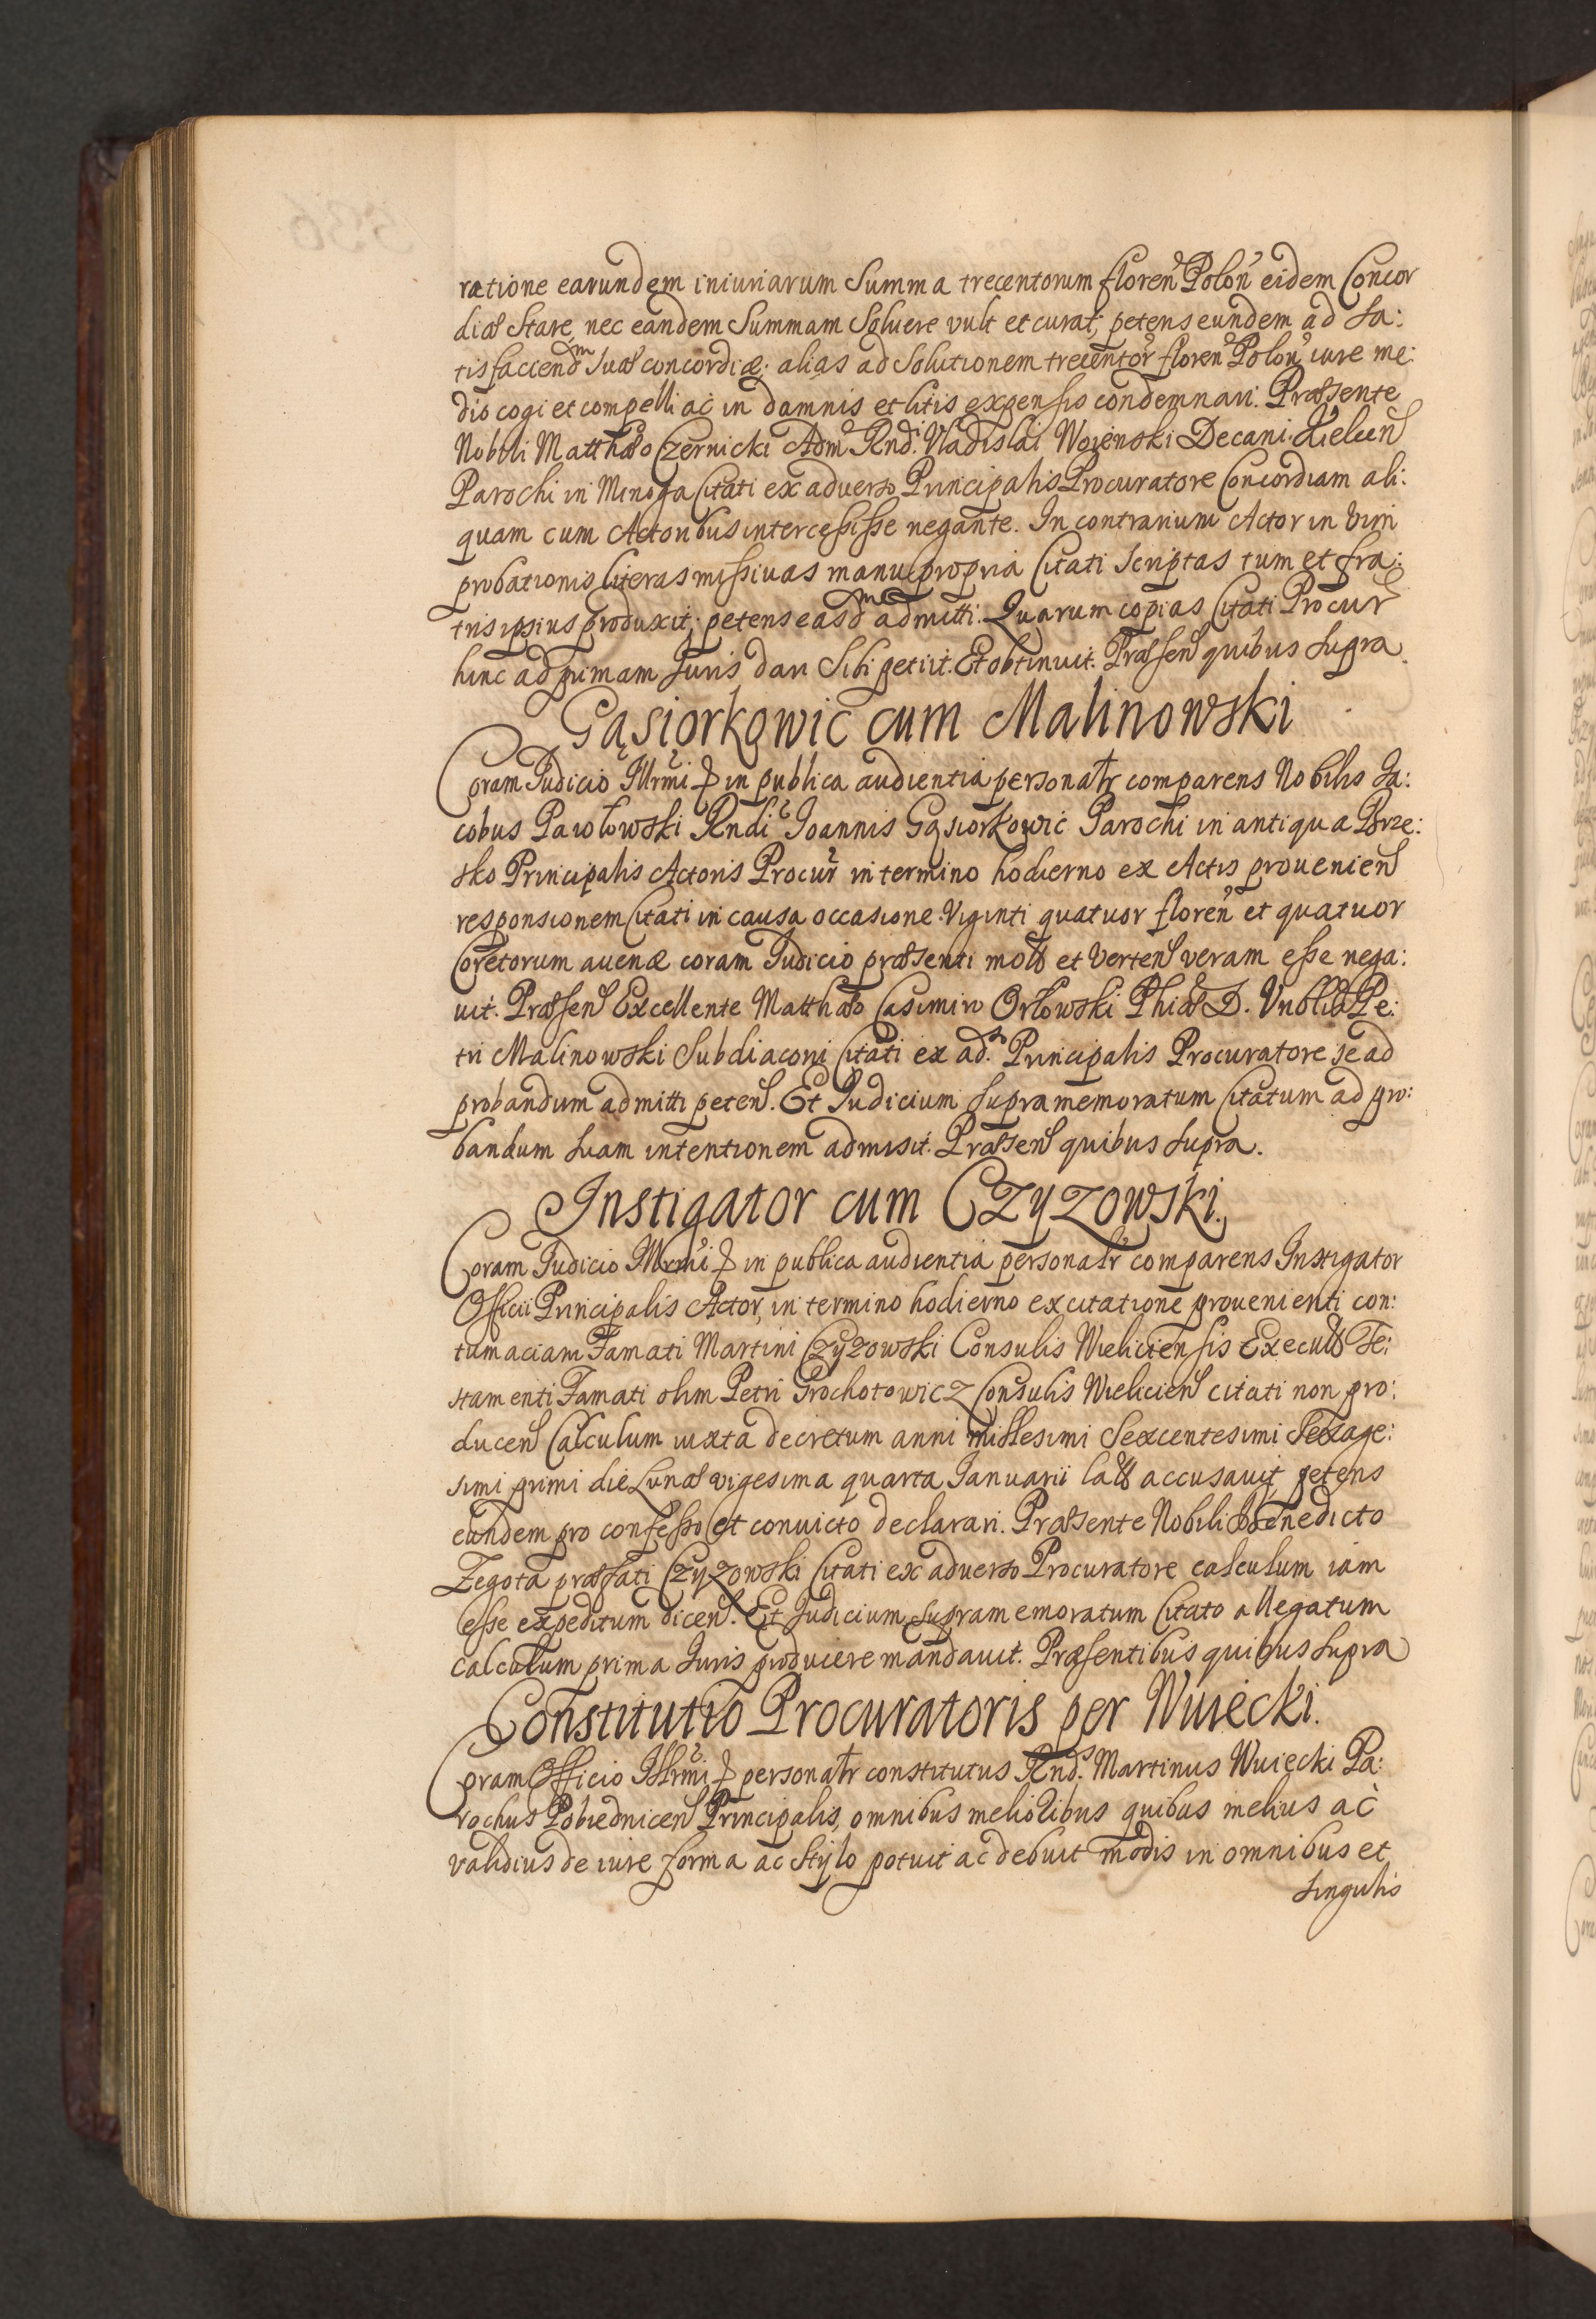 ratione earundem iniuriarum Summa trecentorum floren Polon eidem Concor
diæ Stare, nec eandem Summam Soluere vult et curat, petens eundem ad sa:
tisfaciendm suæ concordiæ: alias ad Solutionem trecentor floren Polon iure me:
dio cogi et compelli ac in damnis et litis expensis condemnari. Præsente
Nobili Matthæo Czernicki Adm Rndi Vladislai Woienski Decani Kielcen
Parochi in Minoga Citati ex aduerso Principalis Procuratore Concordiam ali:
quam cum Actoribus intercessisse negante. In contrarium Actor in vim
probationis literas missiuas manu propria Citati scriptas tum et fra:
tris ipsius produxit, petens easdm admitti. Quarum copias Citati Procur
hinc ad primam Iuris dari Sibi petiit. Et obtinuit. Præsen quibus supra.
Gąsiorkowic cum Malinowski
Coram Judicio Illrmi in publica audientia personalr comparens Nobilis Ja:
cobus Pawłowski Rndi Joannis Gąsiorkowic Parochi in antiqua Brze:
sko Principalis Actoris Procur in termino hodierno ex Actis prouenien
responsionem Citati in causa occasione Viginti quatuor floren et quatuor
Coretorum auenæ coram Judicio præsenti mot et verten veram esse nega:
uit. Præsen Excellente Matthæo Casimiro Orłowski Phiæ D. Vnblis Pe:
tri Malinowski Subdiaconi Citati ex ad.so Principalis Procuratore se ad
probandum admitti peten. Et Judicium supramemoratum Citatum ad pro:
bandum suam intentionem admisit. Præsen quibus supra.
Instigator cum Czyzowski.
Coram Judicio Illrmi in publica audientia personalr comparens Instigator
Officii Principalis Actor, in termino hodierno ex citatione prouenienti con:
tumaciam Famati Martini Czyzowski Consulis Wieliciensis Execut Te:
stamenti Famati olim Petri Grochotowicz Consulis Wielicien citati non pro:
ducen Calculum iuxta decretum anni millesimi Sexcentesimi Sexage:
simi primi die Lunæ vigesima quarta Januarii lat accusauit, petens
eundem pro confesso et conuicto declarari. Præsente Nobili Benedicto
Zegota præfati Czyzowski Citati ex aduerso Procuratore calculum iam
esse expeditum dicen. Et Judicium supramemoratum Citato allegatum
calculum prima Iuris producere mandauit. Præsentibus quibus supra
Constitutio Procuratoris per Wuiecki.
Coram Officio Illrmi personalr constitutus Rnds Martinus Wuiecki Pa:
rochus Pobiednicen Principalis, omnibus melioribus quibus melius ac
validius de iure forma ac Stylo potuit ac debuit modis in omnibus et
singulis